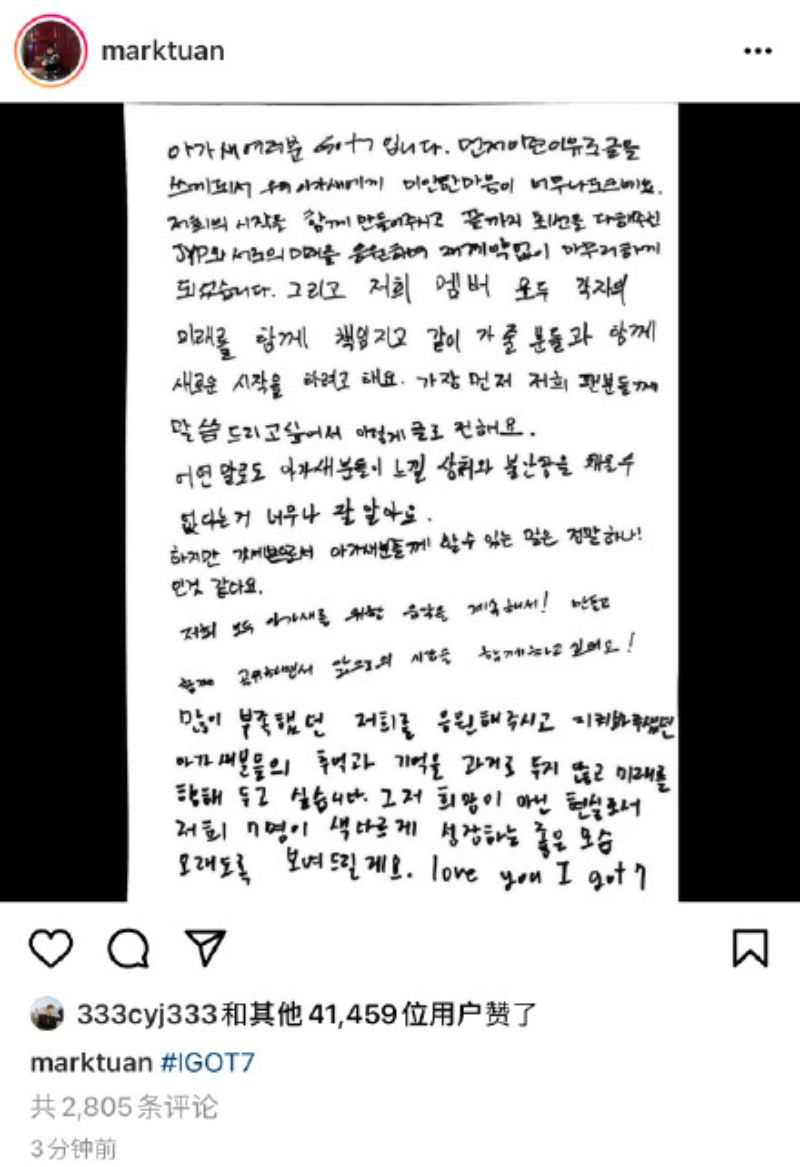 marktuan
아가새여러분 GOT7 입니다. 먼저 이런 이유로 글을
쓰게되서 우리 아가새에게 미안한마음이 너무나도크네요.
저희의 시작을 함께 만들어주시고 끝까지 최선을 다해주신
JYP와 서로의 미래를 응원하며 재계약없이 마무리하게
되었습니다. 그리고 저희 멤버 모두 각자의
미래를 함께 책임지고 같이 가 줄 분들과 함께
새로운 시작을 하려고 해요. 가장 먼저 저희 팬분들께
말씀드리고싶어서 이렇게 글로 전해요.
어떤 말로도 아가새분들이 느낄 상처와 불안감을 채울수
없다는거 너무나 잘 알아요.
하지만 갓세븐으로서 아가새분들께 할수 있는 말은 정말하나!
인것 같아요.
저희 모두 아가새를 위한 음악을 계속해서! 만들고
함께 공유하면서 앞으로의 시간을 함께하고싶어요!
많이 부족했던 저희를 응원해주시고 지켜봐주셨던
아가새분들의 추억과 기억을 과거로 두지 않고 미래를
향해 두고 싶습니다. 그저 희망이 아닌 현실로서
저희 7명이 색다르게 성장하는 좋은 모습
오래도록 보여드릴게요. love you I got7
333cyj333和其他 41,459 位用户赞了
marktuan #IGOT7
共 2,805 条评论
3分钟前